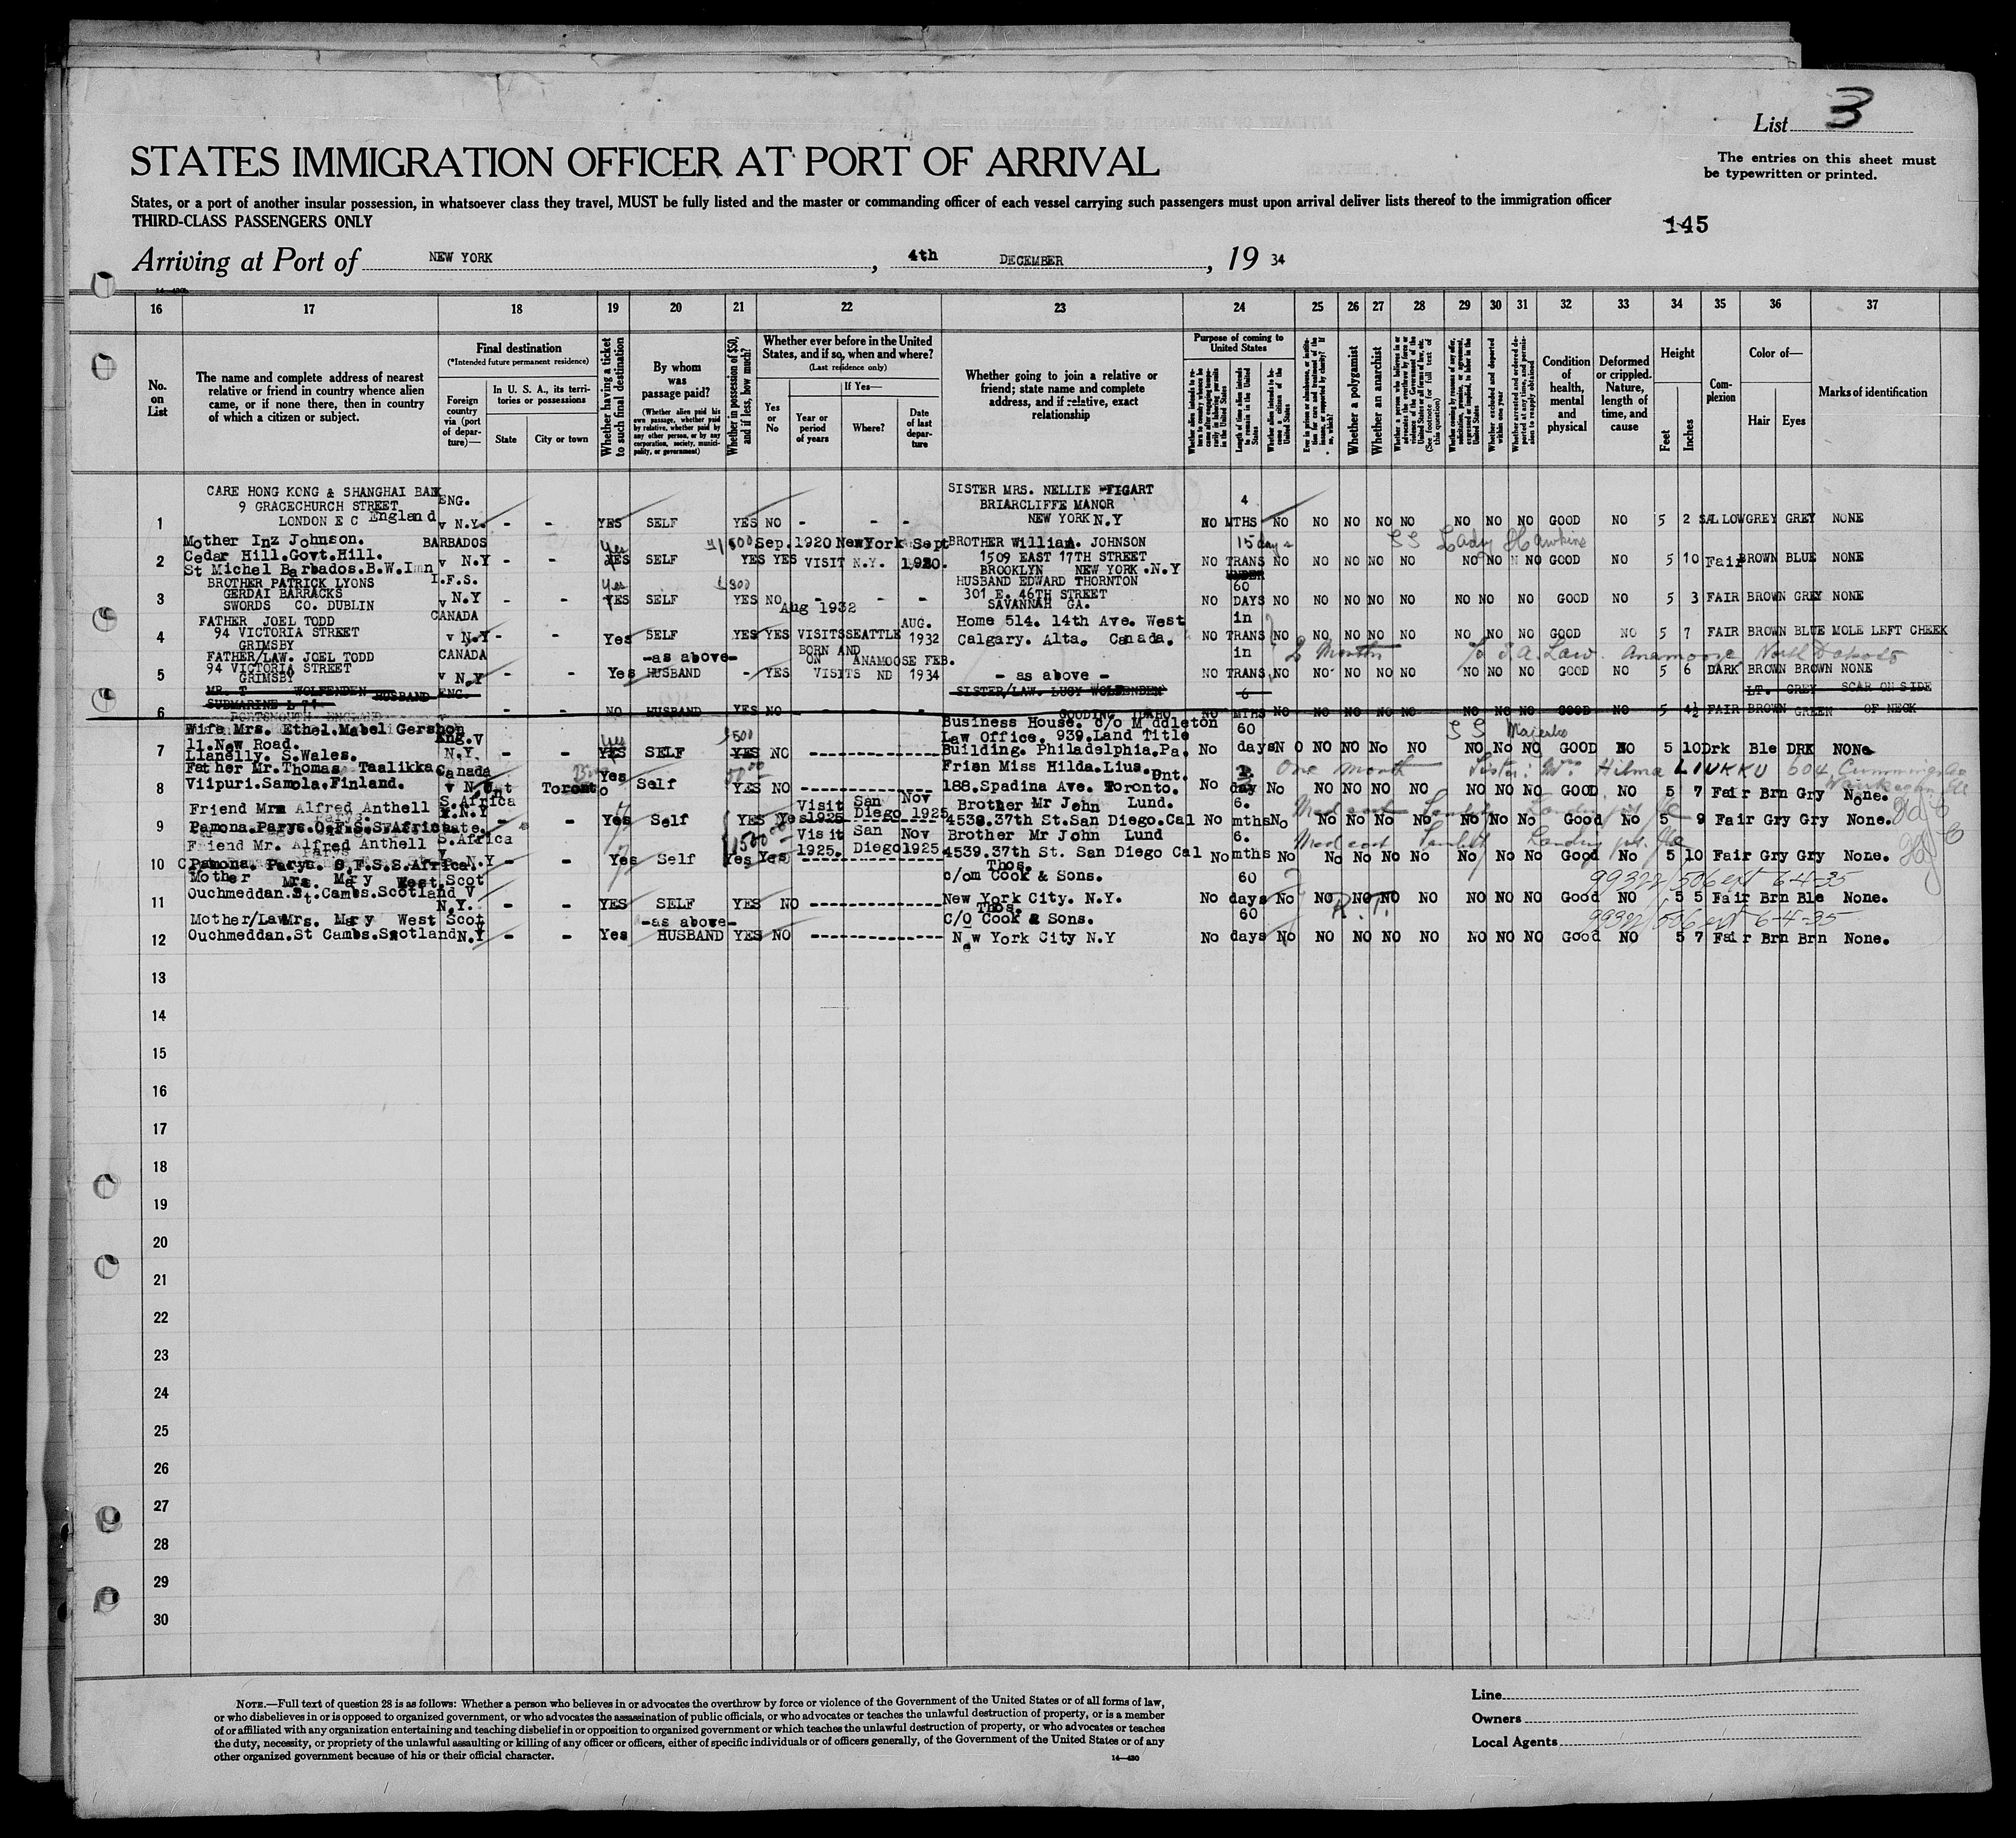 List 3
STATES IMMIGRATION OFFICER AT PORT OF ARRIVAL
The entries on this sheet must
be typewritten or printed.
States, or a port of another insular possession, in whatsoever class they travel, MUST be fully listed and the master or commanding officer of each vessel carrying such passengers must upon arrival deliver lists thereof to the immigration officer
THIRD-CLASS PASSENGERS ONLY
145
Arriving at Port of NEW YORK, 4th DECEMBER, 19 34
16 17 18 19 20 21 22 23 24 25 26 27 28 29 30 31 32 33 34 35 36 37
No. on List
The name and complete address of nearest relative or friend in country whence alien came, or if none there, then in country of which a citizen or subject.
Final destination
(*Intended future permanent residence)
Foreign country via (port of departure)—
In U. S. A., its territories or possessions
State
City or town
Whether having a ticket to such final destination
By whom was passage paid?
(Whether alien paid his own passage, whether paid by relative, whether paid by any other person, or by any corporation, society, municipality, or government)
Whether in possession of $50, and if less, how much?
Whether ever before in the United States, and if so, when and where?
(Last residence only)
Yes or No
If Yes—
Year or period of years
Where?
Date of last departure
Whether going to join a relative or friend; state name and complete address, and if relative, exact relationship
Purpose of coming to United States
Length of time alien intends to remain in the United States
Whether alien intends to become a citizen of the United States
Whether a polygamist
Whether an anarchist
Whether excluded and deported within one year
Condition of health, mental and physical
Deformed or crippled. Nature, length of time, and cause
Height
Feet
Inches
Complexion
Color of—
Hair
Eyes
Marks of identification
CARE HONG KONG & SHANGHAI BANK ENG. SISTER MRS. NELLIE FIGART
9 GRACECHURCH STREET BRIARCLIFFE MANOR 4
1 LONDON E C England v N.Y. - - YES SELF YES NO - - - NEW YORK N.Y NO MTHS NO NO NO NO NO NO NO NO GOOD NO 5 2 SALLOW GREY GREY NONE
Mother Inz Johnson. BARBADOS Yes $1500 Sep.1920 New York Sept BROTHER William. JOHNSON 15 days SS Lady Hawkins
2 Cedar Hill.Govt.Hill. v N.Y - - YES SELF YES YES VISIT N.Y. 1920. 1509 EAST 17TH STREET NO TRANS NO NO NO NO NO NO NO NO GOOD NO 5 10 Fair BROWN BLUE NONE
St Michel Barbados.B.W.I BROOKLYN NEW YORK.N.Y
BROTHER PATRICK LYONS I.F.S. Yes HUSBAND EDWARD THORNTON 60
3 GERDAI BARRACKS v N.Y - - YES SELF YES NO - - - 301 E. 46TH STREET NO DAYS NO NO NO NO NO NO NO NO GOOD NO 5 3 FAIR BROWN GREY NONE
SWORDS CO. DUBLIN SAVANNAH GA.
FATHER JOEL TODD CANADA Aug 1932 AUG. Home 514. 14th Ave. West in
4 94 VICTORIA STREET v N.Y - - Yes SELF YES YES VISITS SEATTLE 1932 Calgary. Alta. Canada. NO TRANS NO NO NO NO NO NO NO NO GOOD NO 5 7 FAIR BROWN BLUE MOLE LEFT CHEEK
GRIMSBY
FATHER/LAW. JOEL TODD CANADA -as above- BORN AND in 2 Months c/o J.A. Law. Anamoose North Dakota
5 94 VICTORIA STREET v N.Y - - Yes HUSBAND - YES ON VISITS ANAMOOSE ND FEB. 1934 - as above - NO TRANS NO NO NO NO NO NO NO NO GOOD NO 5 6 DARK BROWN BROWN NONE
GRIMSBY
MR. T WOLFENDEN HUSBAND ENG. SISTER/LAW. LUCY WOLFENDEN 6 LT. GREY SCAR ON SIDE
6 SUBMARINE L - - NO HUSBAND YES NO - - - GOODING IDAHO NO MTHS NO NO NO NO NO NO NO NO GOOD NO 5 4½ FAIR BROWN GREEN OF NECK
PORTSMOUTH ENGLAND
Wife Mrs. Ethel.Mabel Gershon Eng.V Yes $500 Business House. c/o Middleton 60 SS Majestic
7 11.New Road. N.Y. - - YES SELF YES NO Law Office. 939.Land Title No days NO NO NO NO NO NO NO No NO GOOD NO 5 10 Drk Ble DRK NONe
Llanelly. S.Wales. Building. Philadelphia.Pa.
Father Mr.Thomas Taalikka Canada Frien Miss Hilda.Lius. One month Sister: Mrs Hilma LIUKKU 604 Cummings Av Waukegan Ill
8 Viipuri.Samola.Finland. v N.Y Ont Toronto Yes Self YES NO 188.Spadina Ave. Toronto. Ont. No day No NO NO NO NO NO NO NO GOOD NO 5 7 Fair Brn Gry None.
Friend Mrs Alfred Anthell S.Africa Visit San Nov Brother Mr John Lund. 6.
9 Pamona.Parys.O.F.S.S.Africa. v.N.Y - - Yes Self YES Yes 1925 Diego 1925 4539.37th St.San Diego.Cal No mths No No No No NO NO NO NO Good No 5 9 Fair Gry Gry None.
Friend Mr. Alfred Anthell S.Africa $1500 Visit San Nov Brother Mr John Lund 6.
10 Pamona. Parys. O.F.S.S.Africa. v N.Y - - Yes Self Yes Yes 1925. Diego 1925 4539.37th St. San Diego Cal No mths No No NO NO NO NO NO NO NO Good No 5 10 Fair Gry Gry None.
Mother Mrs. Mary West.Scot Thos. c/om Cook & Sons. 60 99322/506 ext 6-4-35
11 Ouchmeddan.St.Cambs.Scotland V N.Y. - - YES SELF YES NO New York City. N.Y. No days No NO NO NO NO NO NO NO Good NO 5 5 Fair Brn Ble None.
Mother/Law Mrs. Mary West Scot -as above- Thos. c/o Cook & Sons. 60 R.T. 99322/506 ext 6-4-35
12 Ouchmeddan.St Cambs.Scotland N.Y - - Yes HUSBAND YES NO New York City N.Y No days No NO NO NO NO NO NO NO Good NO 5 7 Fair Brn Brn None.
13
14
15
16
17
18
19
20
21
22
23
24
25
26
27
28
29
30
NOTE.—Full text of question 28 is as follows: Whether a person who believes in or advocates the overthrow by force or violence of the Government of the United States or of all forms of law,
or who disbelieves in or is opposed to organized government, or who advocates the assassination of public officials, or who advocates or teaches the unlawful destruction of property, or is a member
of or affiliated with any organization entertaining and teaching disbelief in or opposition to organized government or which teaches the unlawful destruction of property, or who advocates or teaches
the duty, necessity, or propriety of the unlawful assaulting or killing of any officer or officers, either of specific individuals or of officers generally, of the Government of the United States or of any
other organized government because of his or their official character.
14—430
Line
Owners
Local Agents